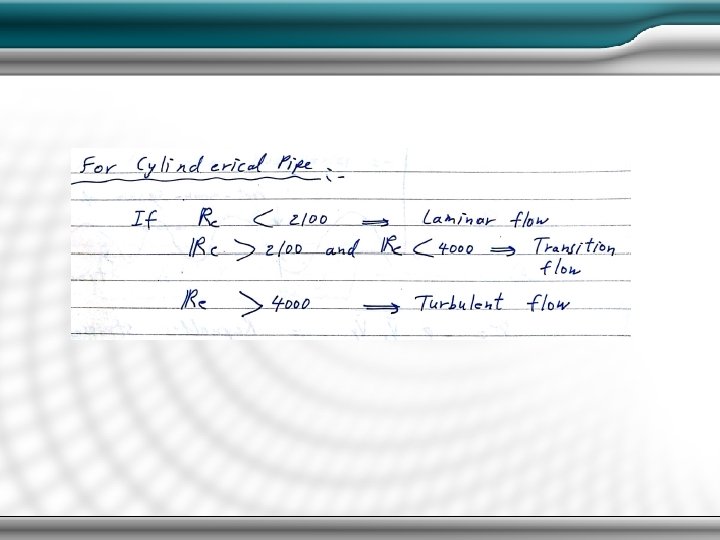 For Cylinderical Pipe :-
If Re < 2100 ⇒ Laminar flow
Re > 2100 and Re < 4000 ⇒ Transition
flow
Re > 4000 ⇒ Turbulent flow